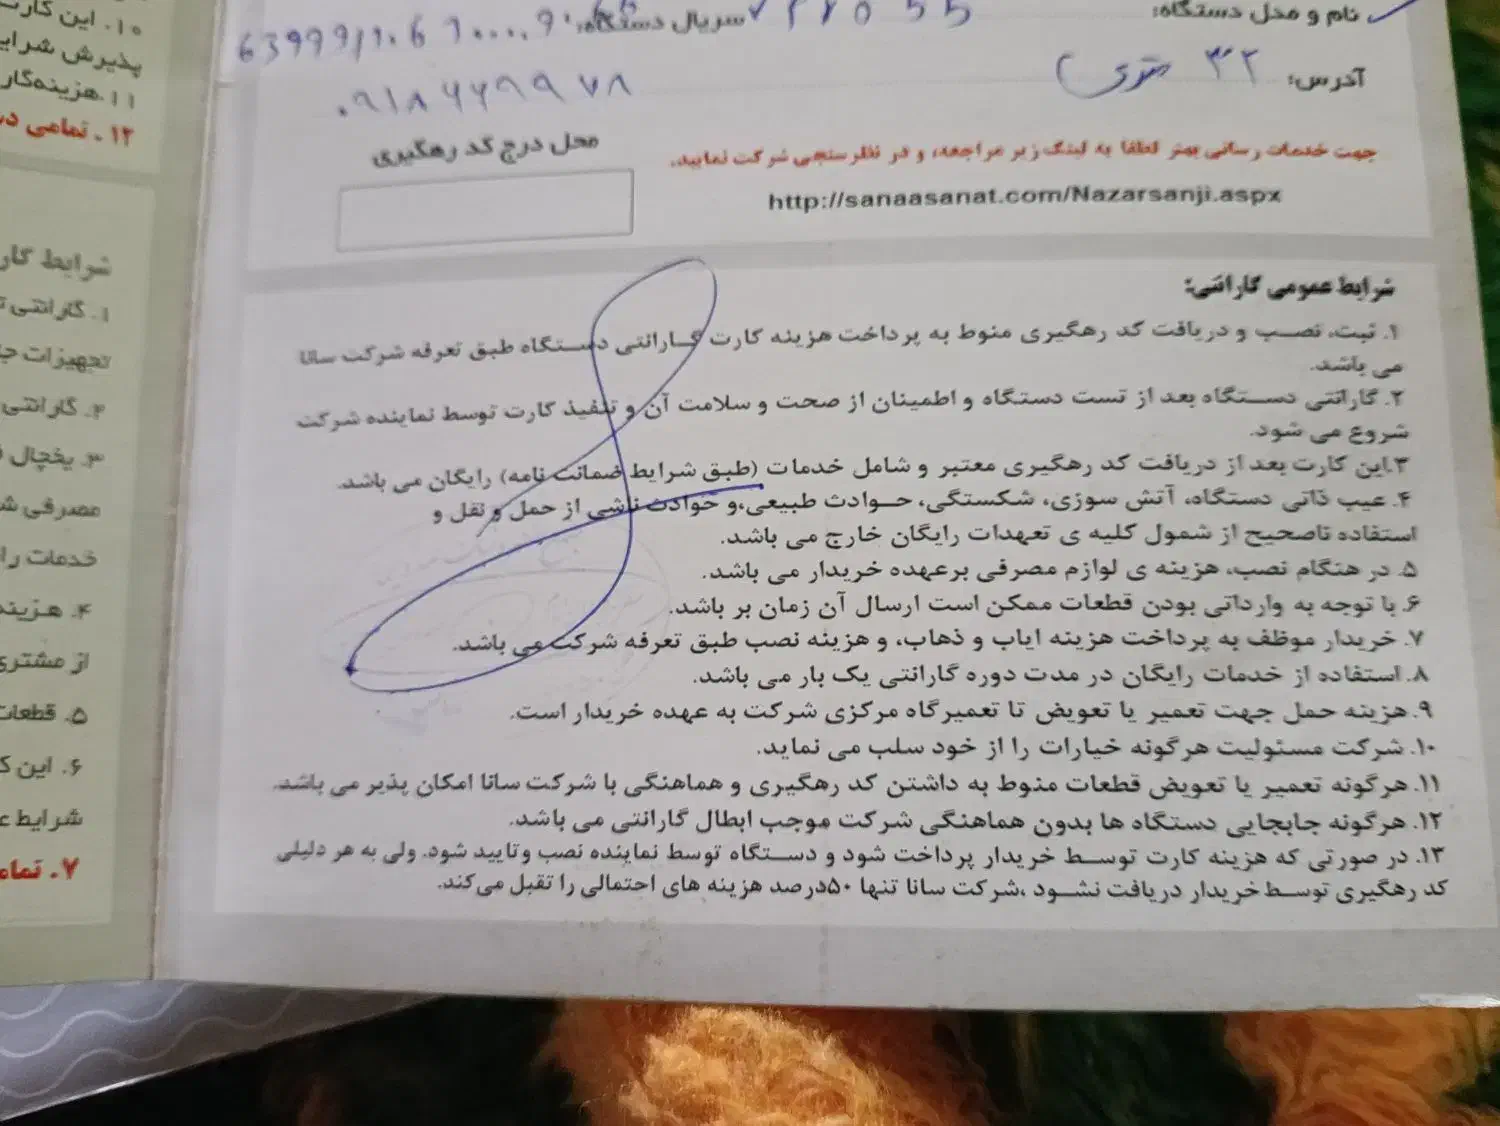 نام و مدل دستگاه:
سریال دستگاه:
آدرس: ۳۲ متری
محل درج کد رهگیری
جهت خدمات رسانی بهتر لطفا به لینک زیر مراجعه، و در نظرسنجی شرکت نمایید.
http://sanaasanat.com/Nazarsanji.aspx
شرایط عمومی گارانتی:
۱. ثبت، نصب و دریافت کد رهگیری منوط به پرداخت هزینه کارت گارانتی دستگاه طبق تعرفه شرکت سانا
می باشد.
۲. گارانتی دستگاه بعد از تست دستگاه و اطمینان از صحت و سلامت آن و تنفیذ کارت توسط نماینده شرکت
شروع می شود.
۳.این کارت بعد از دریافت کد رهگیری معتبر و شامل خدمات (طبق شرایط ضمانت نامه) رایگان می باشد.
۴. عیب ذاتی دستگاه، آتش سوزی، شکستگی، حوادث طبیعی،و حوادث ناشی از حمل و نقل و
استفاده ناصحیح از شمول کلیه ی تعهدات رایگان خارج می باشد.
۵. در هنگام نصب، هزینه ی لوازم مصرفی برعهده خریدار می باشد.
۶. با توجه به وارداتی بودن قطعات ممکن است ارسال آن زمان بر باشد.
۷. خریدار موظف به پرداخت هزینه ایاب و ذهاب، و هزینه نصب طبق تعرفه شرکت می باشد.
۸. استفاده از خدمات رایگان در مدت دوره گارانتی یک بار می باشد.
۹. هزینه حمل جهت تعمیر یا تعویض تا تعمیرگاه مرکزی شرکت به عهده خریدار است.
۱۰. شرکت مسئولیت هرگونه خیارات را از خود سلب می نماید.
۱۱. هرگونه تعمیر یا تعویض قطعات منوط به داشتن کد رهگیری و هماهنگی با شرکت سانا امکان پذیر می باشد.
۱۲. هرگونه جابجایی دستگاه ها بدون هماهنگی شرکت موجب ابطال گارانتی می باشد.
۱۳. در صورتی که هزینه کارت توسط خریدار پرداخت شود و دستگاه توسط نماینده نصب وتایید شود. ولی به هر دلیلی
کد رهگیری توسط خریدار دریافت نشود ،شرکت سانا تنها ۵۰درصد هزینه های احتمالی را تقبل می‌کند.
۱۰. این کارت
پذیرش
۱۱.
۱۲. تمامی
شرایط
۱. گارانتی
تجهیزات
۲. گارانتی
۳. یخچال
مصرفی
خدمات
۴. هزینه
از مشتری
۵. قطعات
۶. این
شرایط
۷.